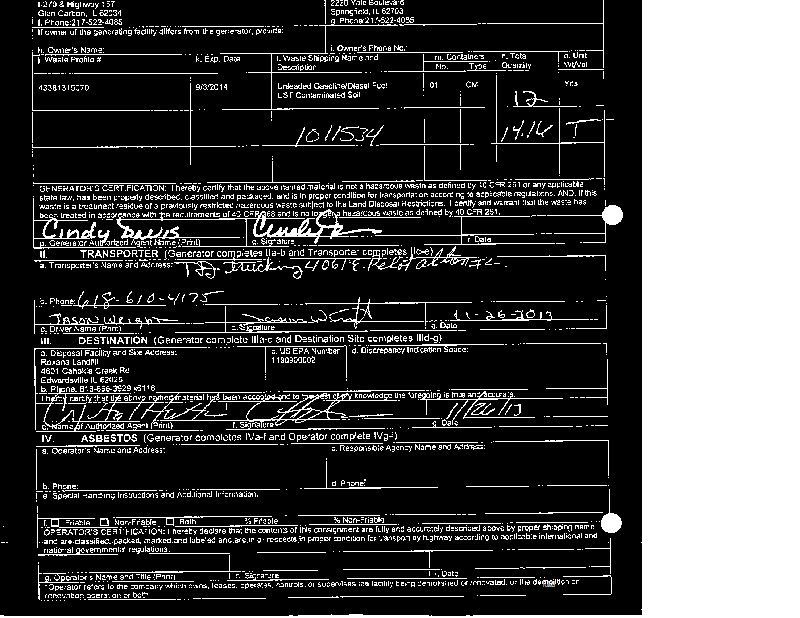 I-270 & Highway 157
2220 Yale Boulevard
Glen Carbon, IL 62034
Springfield, IL 62703
f. Phone:217-522-4085
g. Phone:217-522-4085
If owner of the generating facility differs from the generator, provide:
h. Owner's Name:
i. Owner's Phone No.:
j. Waste Profile #
k. Exp. Date
l. Waste Shipping Name and Description
m. Containers
No.
Type
n. Total Quantity
o. Unit Wt/Vol
43381315070
9/3/2014
Unleaded Gasoline/Diesel Fuel
UST Contaminated Soil
01
CM
12
Yds
1011534
14.16
T
GENERATOR'S CERTIFICATION: I hereby certify that the above named material is not a hazardous waste as defined by 40 CFR 261 or any applicable
state law, has been properly described, classified and packaged, and is in proper condition for transportation according to applicable regulations. AND, if this
waste is a treatment residue of a previously restricted hazardous waste subject to the Land Disposal Restrictions. I certify and warrant that the waste has
been treated in accordance with the requirements of 40 CFR 268 and is no longer a hazardous waste as defined by 40 CFR 261.
Cindy Davis
p. Generator Authorized Agent Name (Print)
q. Signature
r. Date
II. TRANSPORTER (Generator completes IIa-b and Transporter completes IIc-e)
a. Transporter's Name and Address:
Trucking
b. Phone: 618-610-4175
Jason Wright
Jason Wright
11-26-2013
c. Driver Name (Print)
d. Signature
e. Date
III. DESTINATION (Generator complete IIIa-c and Destination Site completes IIId-g)
a. Disposal Facility and Site Address:
c. US EPA Number
d. Discrepancy Indication Space:
Roxana Landfill
1190900002
4601 Cahokia Creek Rd
Edwardsville IL 62025
b. Phone:
I hereby certify that the above named material has been accepted and to the best of my knowledge the foregoing is true and accurate.
11/26/13
e. Name of Authorized Agent (Print)
f. Signature
g. Date
IV. ASBESTOS (Generator completes IVa-f and Operator complete IVg-i)
a. Operator's Name and Address:
c. Responsible Agency Name and Address:
b. Phone:
d. Phone:
e. Special Handling Instructions and Additional Information:
f. Friable Non-Friable Both % Friable % Non-Friable
OPERATOR'S CERTIFICATION: I hereby declare that the contents of this consignment are fully and accurately described above by proper shipping name
and are classified, packed, marked and labeled and are in all respects in proper condition for transport by highway according to applicable international and
national governmental regulations.
g. Operator's Name and Title (Print)
h. Signature
i. Date
*Operator refers to the company which owns, leases, operates, controls, or supervises the facility being demolished or renovated, or the demolition or
renovation operation or both